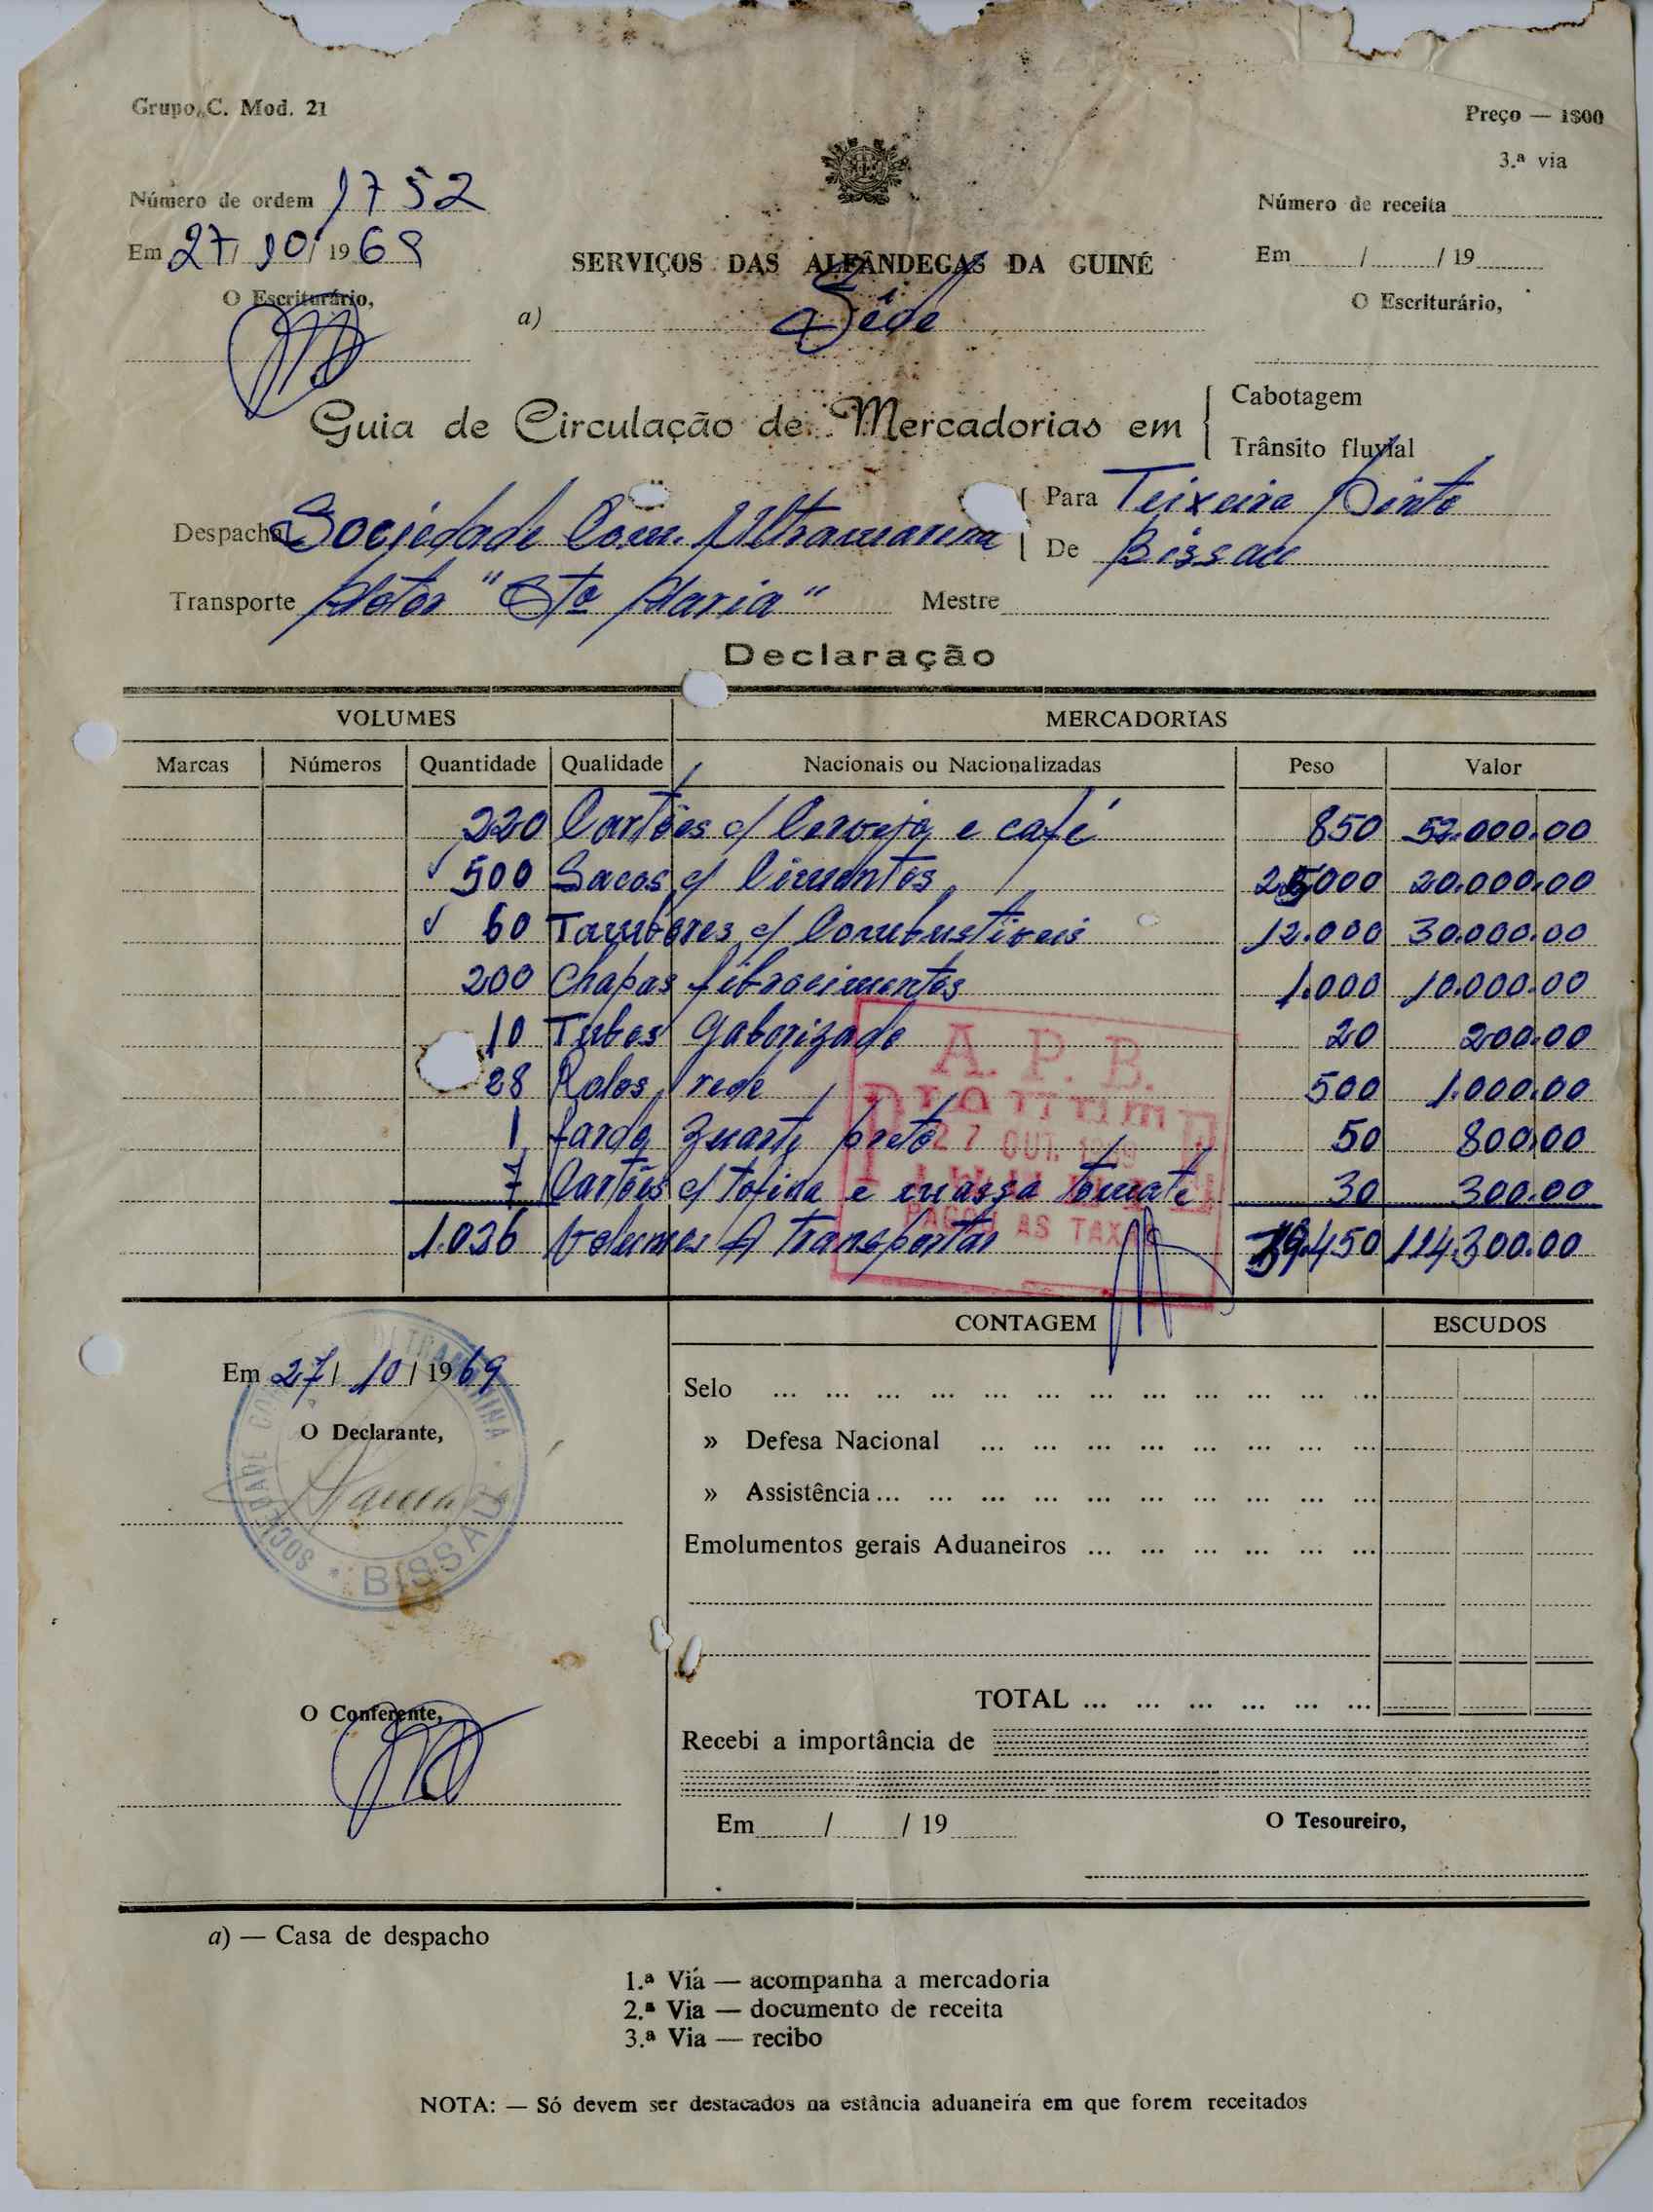 Grupo C. Mod. 21
Preço — 1$00
3.ª via
Número de ordem 1752
Número de receita
Em 27/10/1969
Em / / 19
SERVIÇOS DAS ALFÂNDEGAS DA GUINÉ
O Escriturário,
O Escriturário,
a) Séde
Guia de Circulação de Mercadorias em
Cabotagem
Trânsito fluvial
Despacha Sociedade Com. Ultramarina
Para Teixeira Pinto
De Bissau
Transporte Motor "Sta Maria" Mestre
Declaração
VOLUMES MERCADORIAS
Marcas Números Quantidade Qualidade Nacionais ou Nacionalizadas Peso Valor
220 Cartões c/ Cerveja e café 850 52.000.00
500 Sacos c/ Cimentos 25000 20.000.00
60 Tambores c/ Combustiveis 12.000 30.000.00
200 Chapas fibrocimentos 1.000 10.000.00
10 Tubos Gaborizado 20 200.00
28 Rolos rede 500 1.000.00
1 fardo zuarte preto 50 800.00
7 Cartões c/ tofina e massa tomate 30 300.00
1.026 Volumes A transportar 39.450 114.300.00
A. P. B.
27 OUT. 1969
PAGOU AS TAXAS
CONTAGEM ESCUDOS
Em 27/10/1969
Selo ... ... ... ... ... ... ... ... ... ... ... ...
O Declarante,
» Defesa Nacional ... ... ... ... ... ... ... ...
» Assistência ... ... ... ... ... ... ... ... ... ...
SOCIEDADE COMERCIAL ULTRAMARINA
• BISSAU •
Emolumentos gerais Aduaneiros ... ... ... ... ... ...
TOTAL ... ... ... ... ... ...
O Conferente,
Recebi a importância de
Em / / 19
O Tesoureiro,
a) — Casa de despacho
1.ª Via — acompanha a mercadoria
2.ª Via — documento de receita
3.ª Via — recibo
NOTA: — Só devem ser destacados na estância aduaneira em que forem receitados